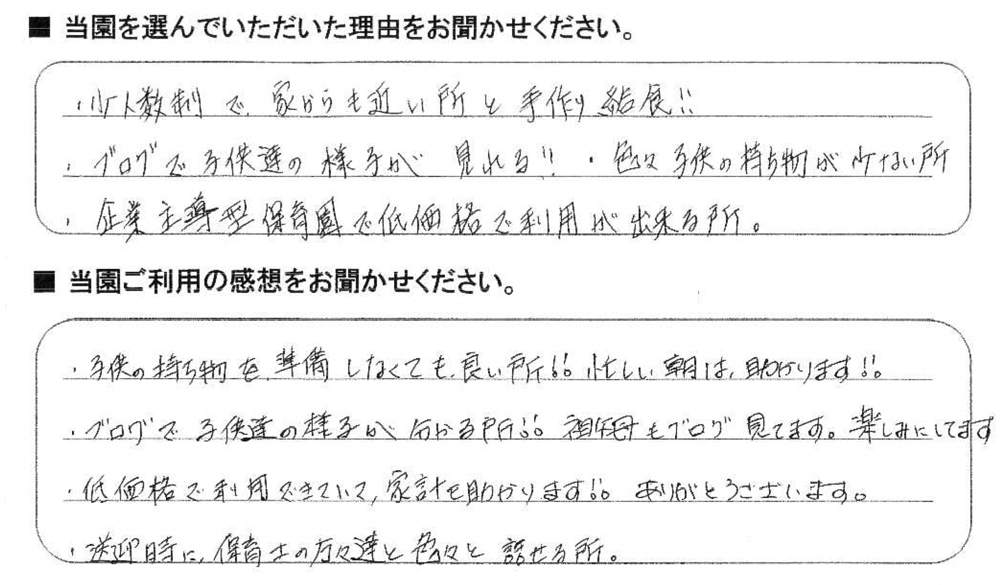 ■ 当園を選んでいただいた理由をお聞かせください。
・少人数制で、家からも近い所と手作り給食!!
・ブログで子供達の様子が見れる!! ・色々子供の持ち物が少ない所
・企業主導型保育園で低価格で利用が出来る所。
■ 当園ご利用の感想をお聞かせください。
・子供の持ち物を準備しなくても良い所!! 忙しい朝は、助かります!!
・ブログで子供達の様子が分かる所!! 祖父母もブログ見てます。楽しみにしてます
・低価格で利用できていて、家計も助かります!! ありがとうございます。
・送迎時に、保育士の方々達と色々と話せる所。